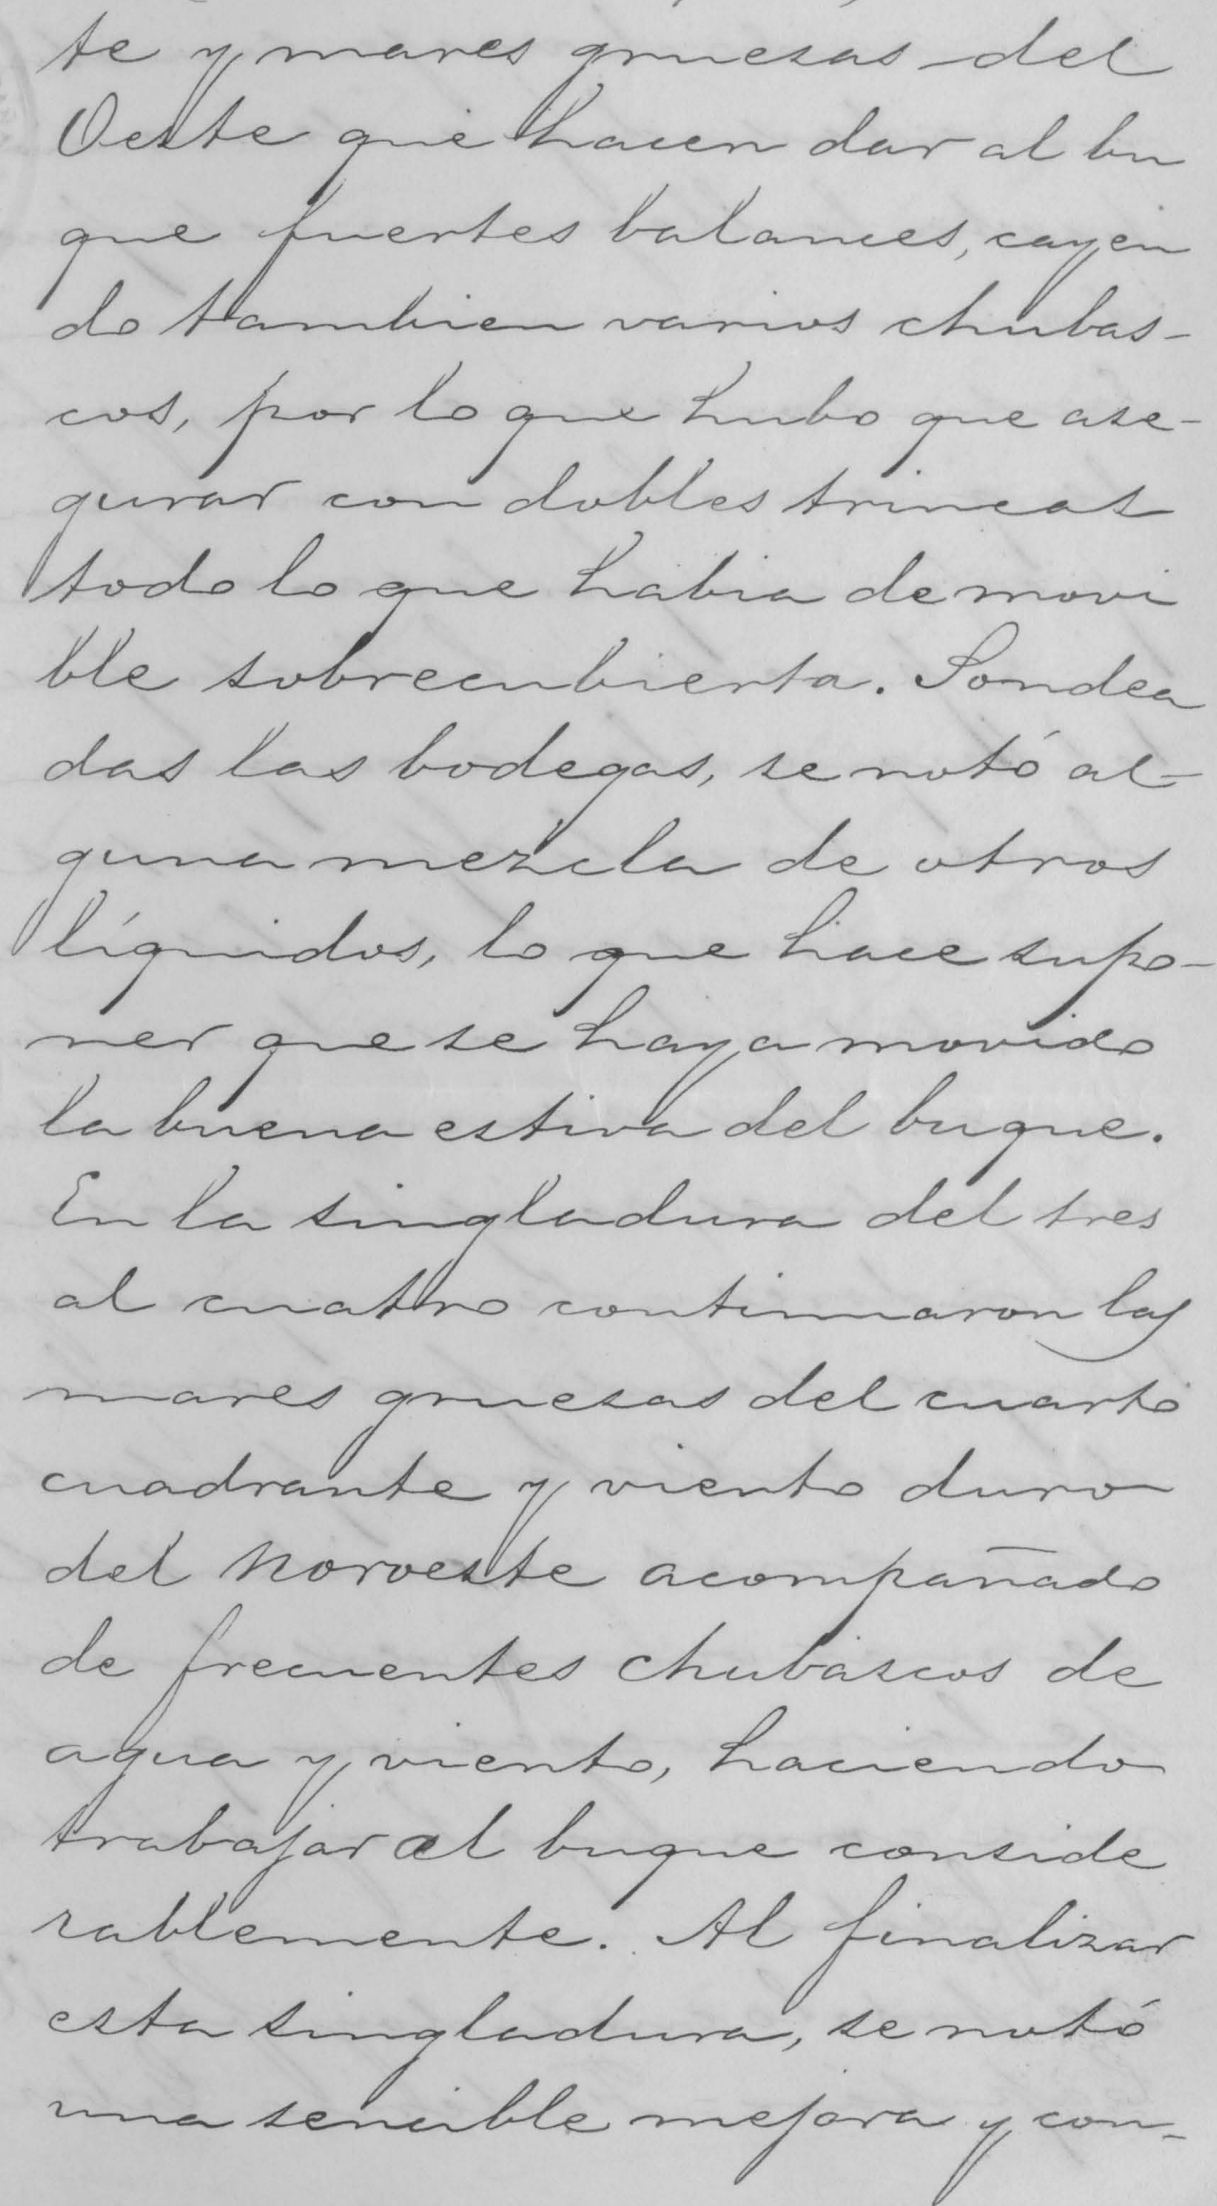 te y mares gruesas del
Oeste que hacen dar al bu
que fuertes balances, cayen
do tambien varios chubas-
cos, por lo que hubo que ase-
gurar con dobles trincas
todo lo que habia de movi
ble sobrecubierta. Sondea
das las bodegas, se notó al-
guna mezcla de otros
líquidos, lo que hace supo-
ner que se haya movido
la buena estiva del buque.
En la singladura del tres
al cuatro continuaron las
mares gruesas del cuarto
cuadrante y viento duro
del Noroeste acompañado
de frecuentes chubascos de
agua y viento, haciendo
trabajar al buque conside
rablemente. Al finalizar
esta singladura, se notó
una sensible mejora y con-